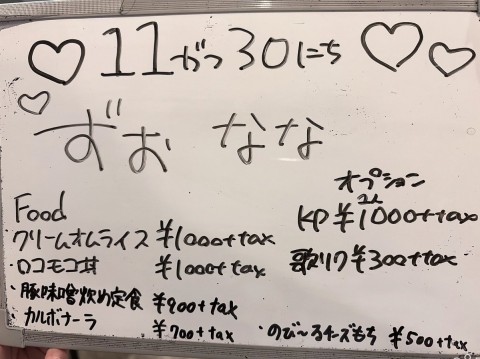 ♡11がつ30にち♡♡
♡ずお なな
オプション
KP ¥1000+tax
歌リク ¥300+tax
Food
クリームオムライス ¥1000+tax
ロコモコ丼 ¥1000+tax
・豚味噌炒め定食 ¥900+tax
・カルボナーラ ¥700+tax
・のび〜るチーズもち ¥500+tax